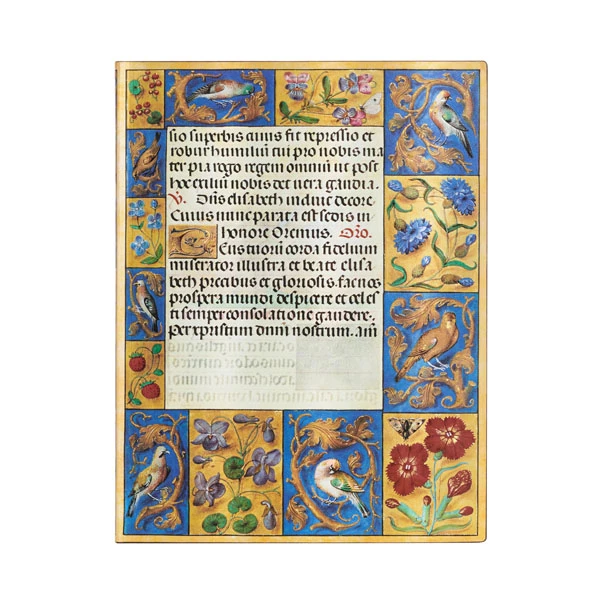 sio superbis cuius fit repressio et
robur humiliũ tu pro nobis ma
ter pia rogo regem omniũ ut post
hoc exiliũ nobis det uera gaudia.
V. Dñs elisabeth induit decore
Cuius nunc parata est sedis in
honore Oremus. Oro.
Deus tuorũ corda fidelium
miserator illustra et beate elisa
beth precibus et gloriosis. fac nos
prospera mundi despicere et cel es
ti semper consolatione gaudere.
per xpristum dñm nostrum. am